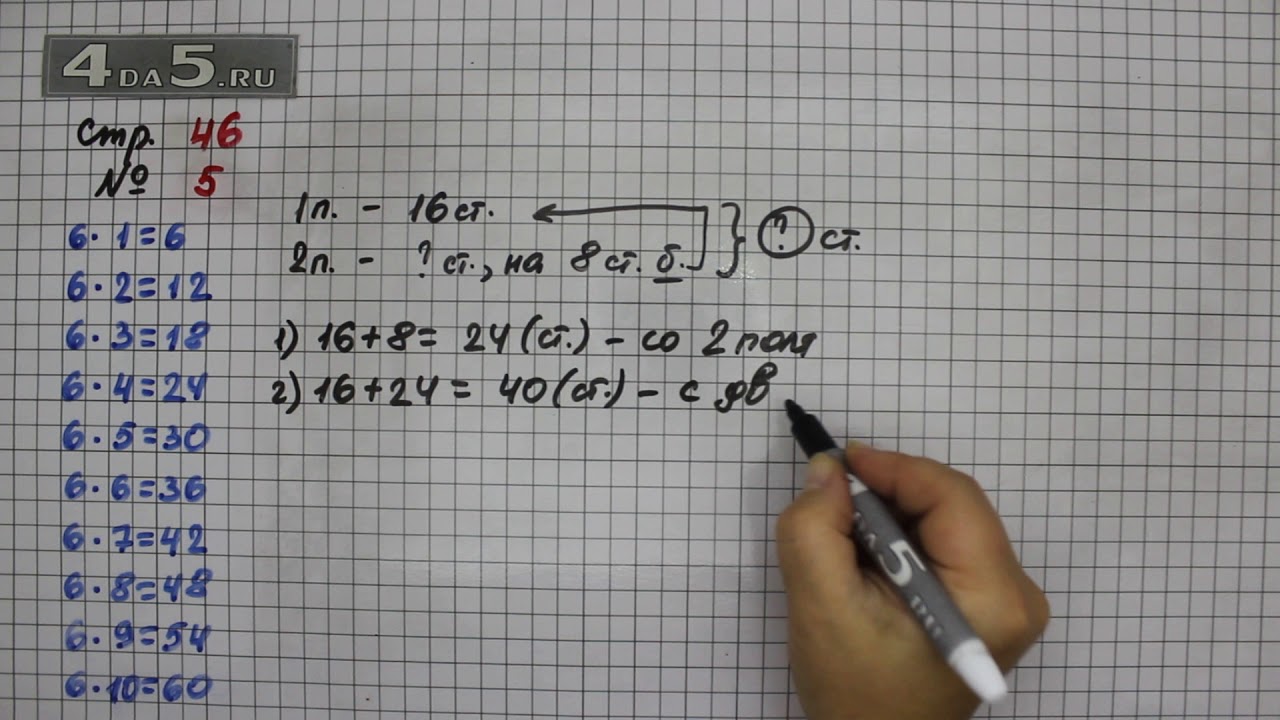 4DA5.RU
Стр. 46
№ 5
6·1=6
6·2=12
6·3=18
6·4=24
6·5=30
6·6=36
6·7=42
6·8=48
6·9=54
6·10=60
1п. - 16 ст.
2п. - ? ст., на 8 ст. б.
? ст.
1) 16+8= 24 (ст.) - со 2 поля
2) 16+24 = 40 (ст.) - с дв
5